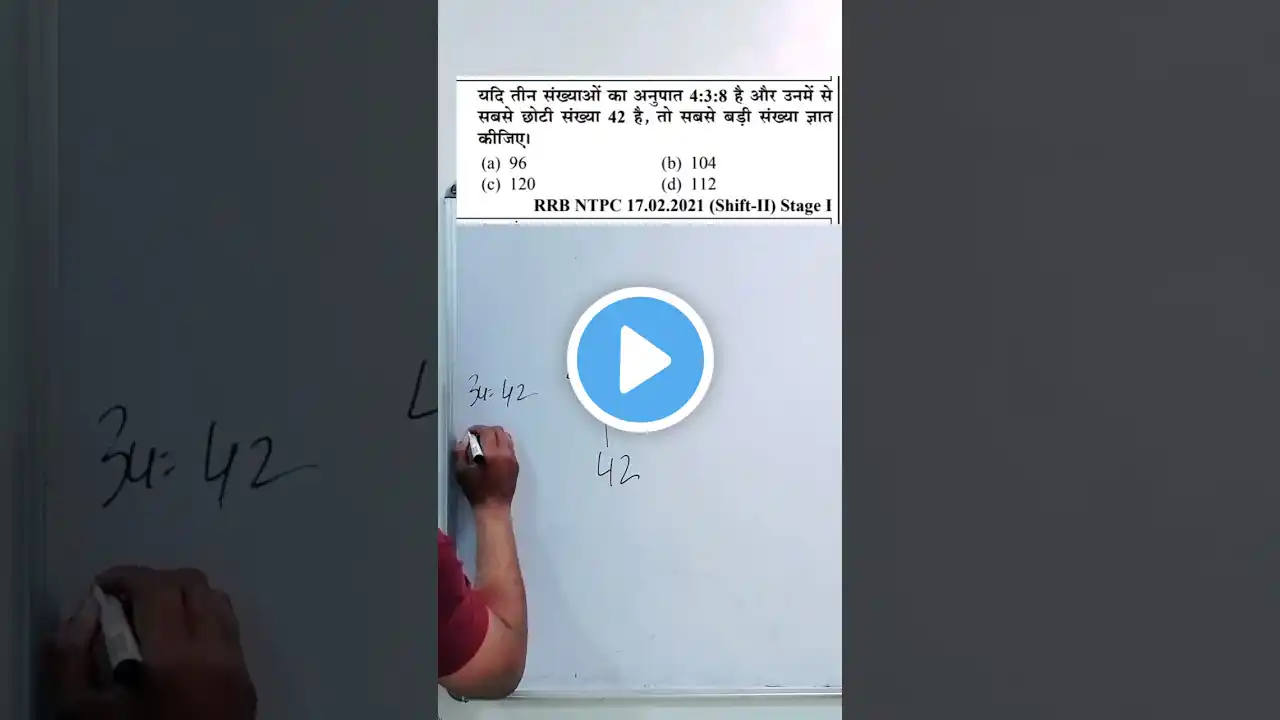 यदि तीन संख्याओं का अनुपात 4:3:8 है और उनमें से
सबसे छोटी संख्या 42 है, तो सबसे बड़ी संख्या ज्ञात
कीजिए।
(a) 96 (b) 104
(c) 120 (d) 112
RRB NTPC 17.02.2021 (Shift-II) Stage I
3u= 42
42